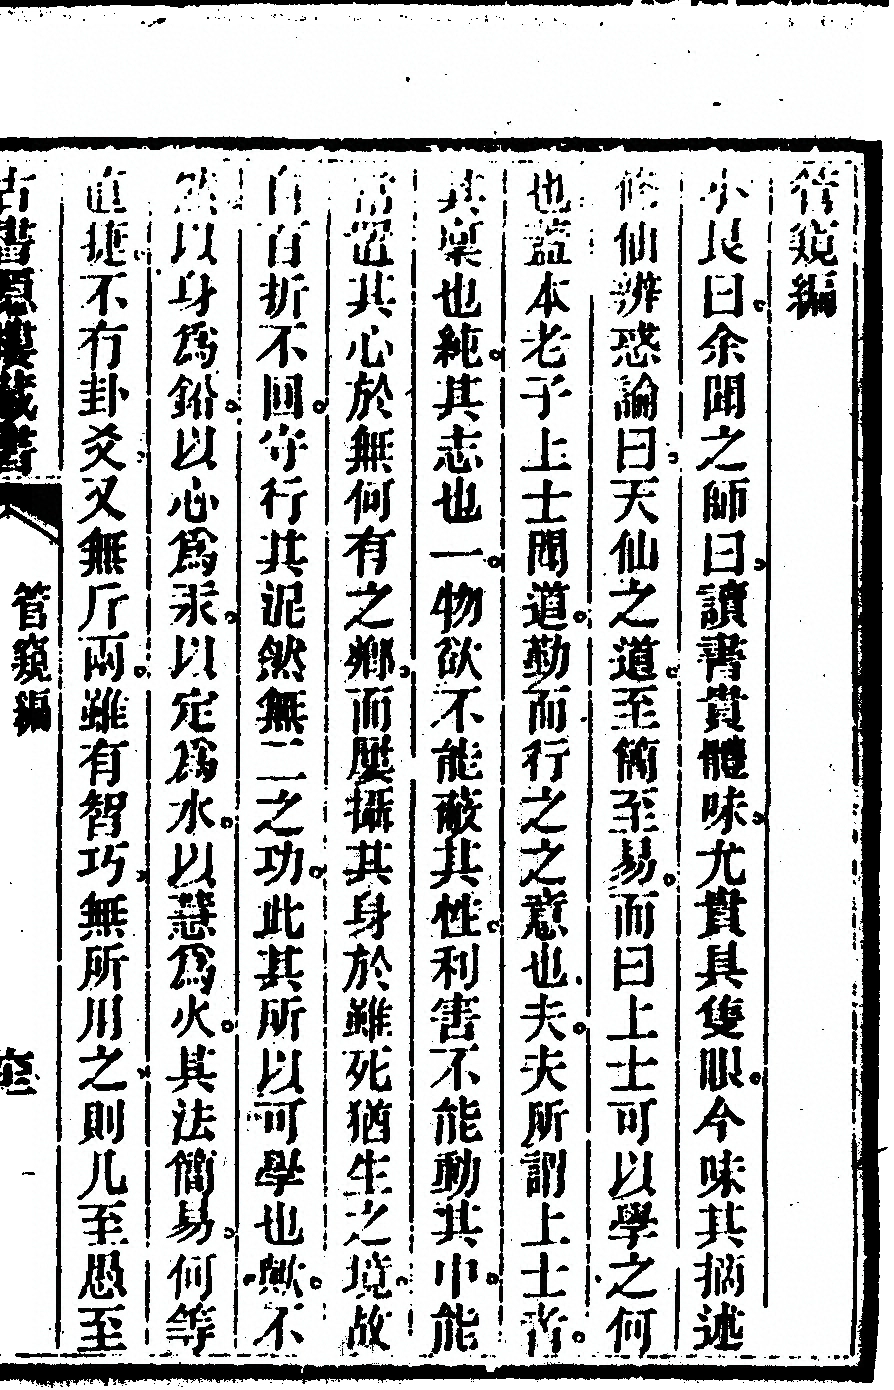 管窺編
小艮曰余聞之師曰讀書貴體味尤貴具隻眼今味其摘述
修仙辨惑論曰天仙之道至簡至易而曰上士可以學之何
也蓋本老子上士聞道勤而行之之意也夫夫所謂上士者
其稟也純其志也一物欲不能蔽其性利害不能動其中能
常置其心於無何有之鄉而屢攝其身於雖死猶生之境故
百折不回守行其泥然無二之功此其所以可學也歟不
然以身為鉛以心為汞以定為水以慧為火其法簡易何等
直捷不有卦爻又無斤兩雖有智巧無所用之則凡至愚至
古書隱樓藏書
管窺編